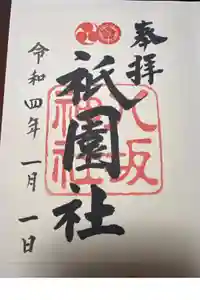 奉拝
八坂神社
祇園社
令和四年一月一日